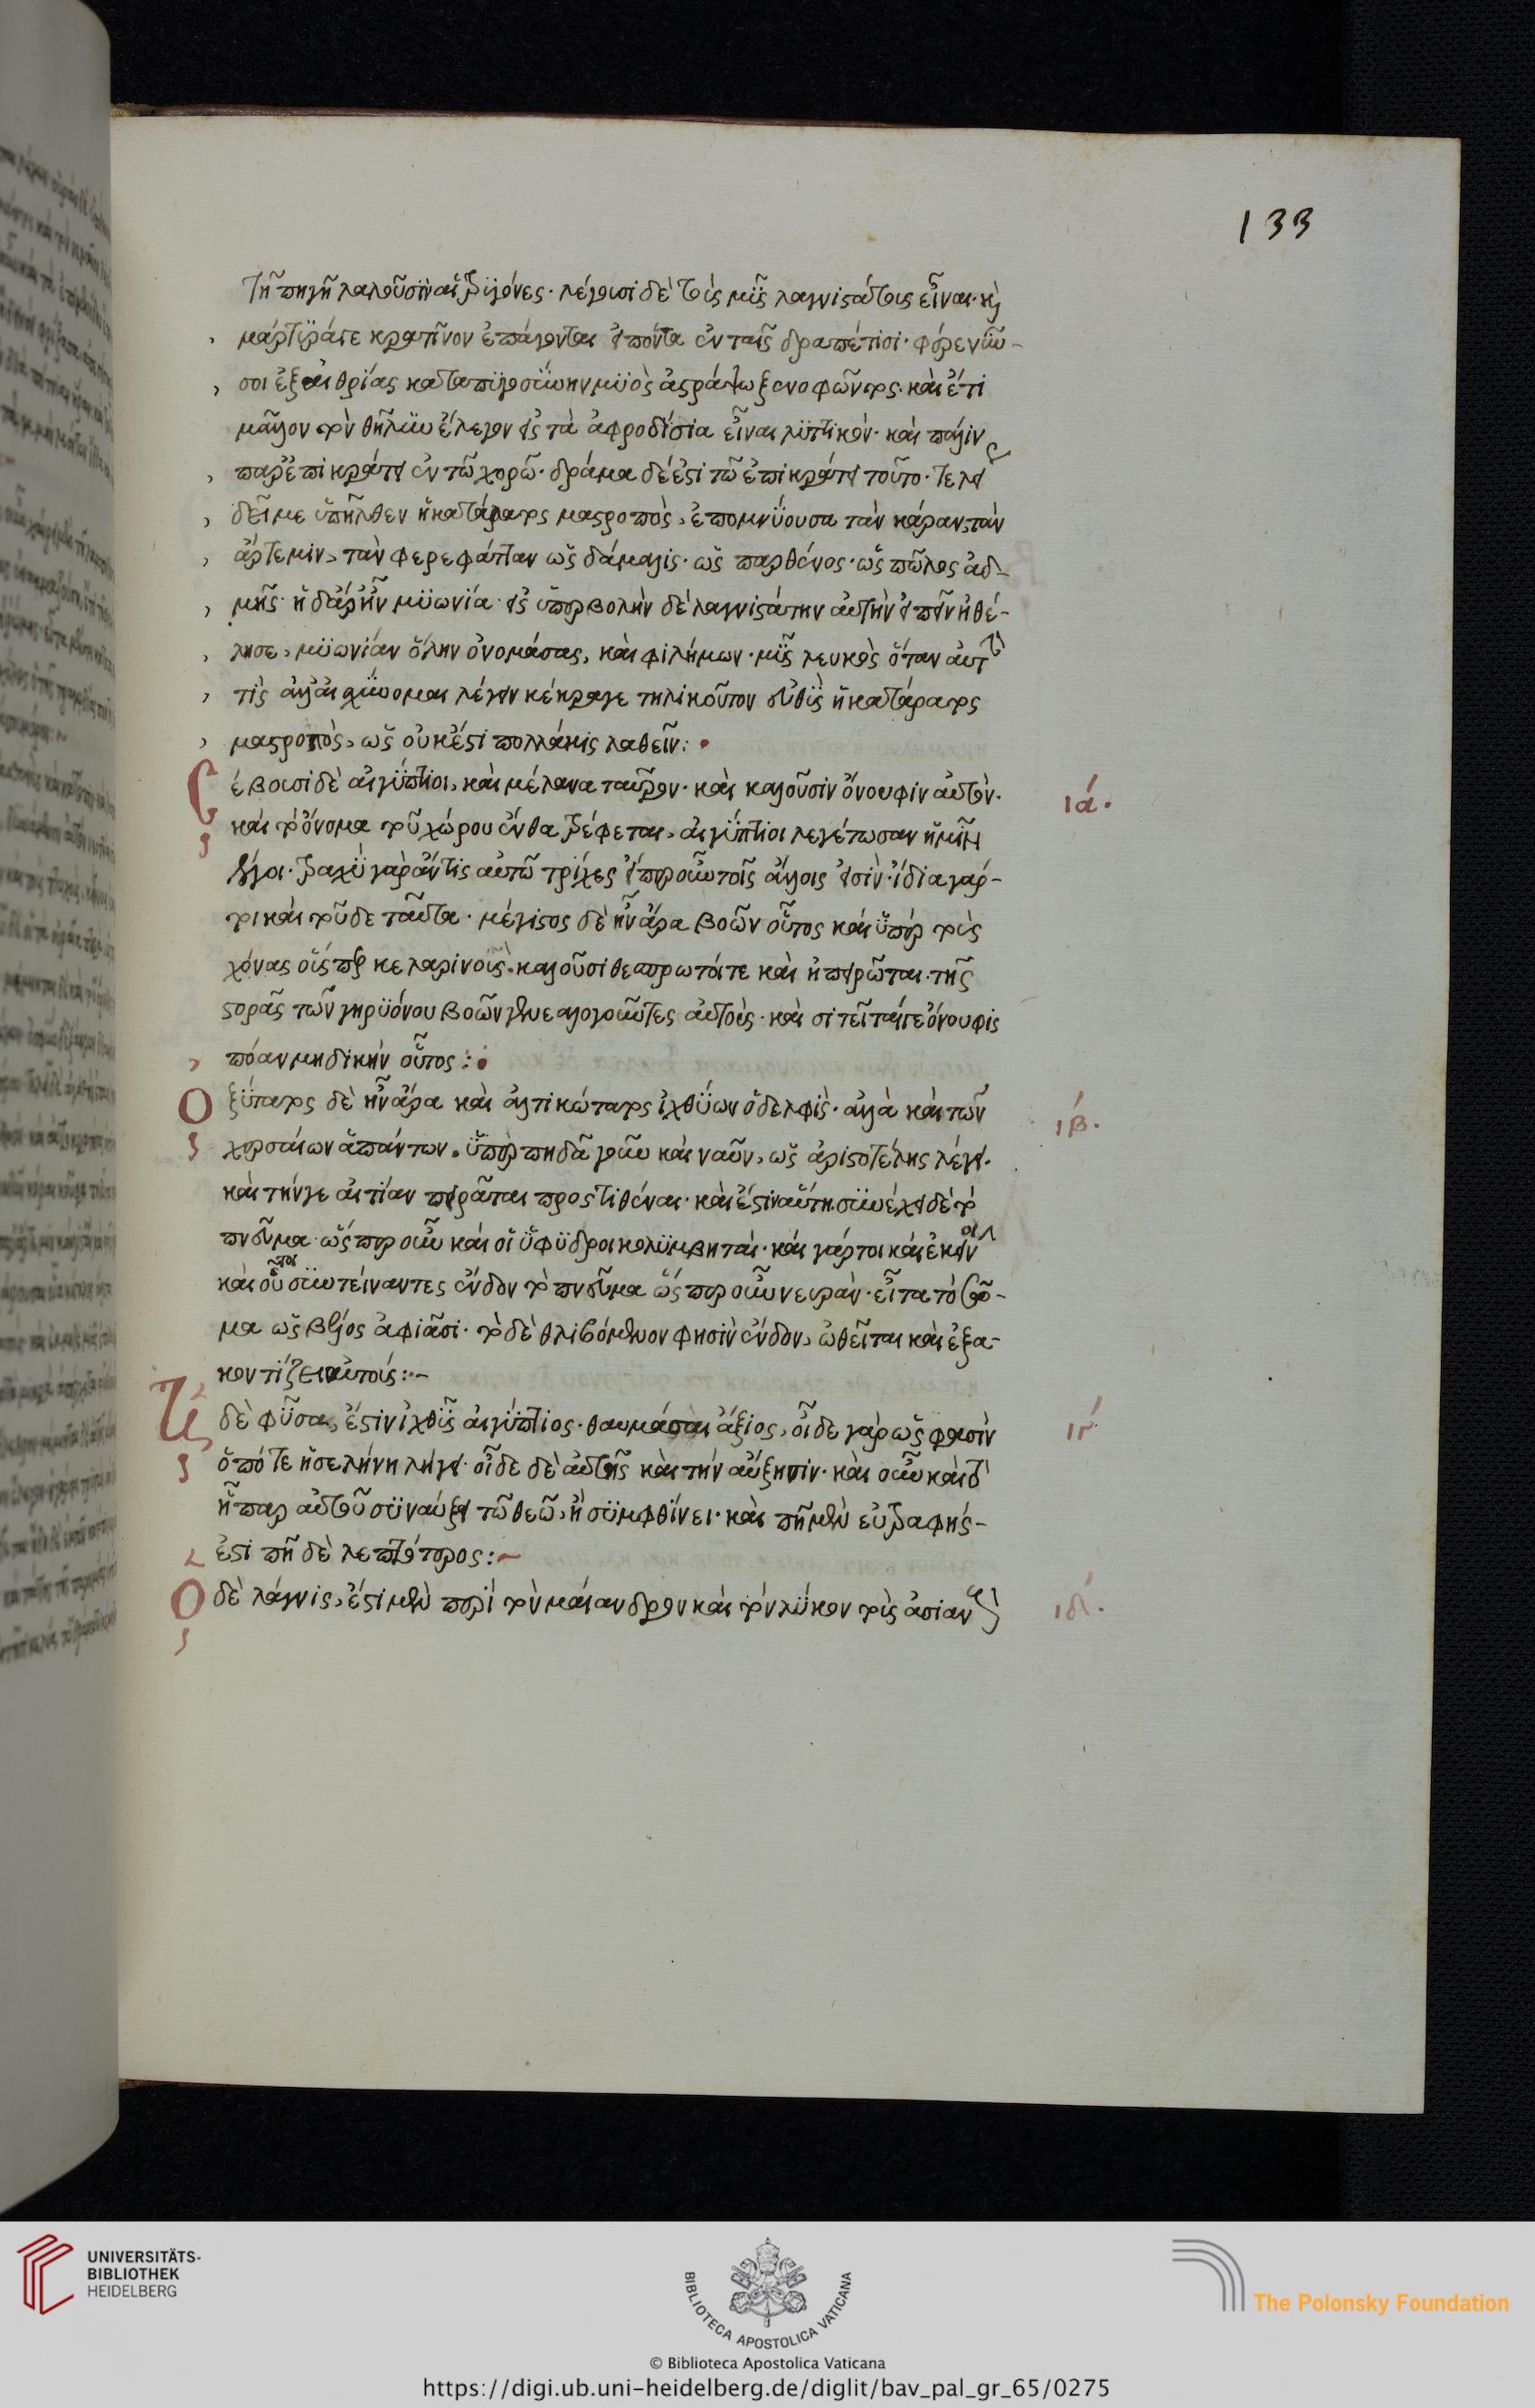 133
τῆ πηγῆ λαλοῦσιν αἱ τρυγόνες· λέγουσι δὲ τοὺς μῦς λαγνιστάτους εἶναι· καὶ
μάρτυρά γε κρατῖνον ἐπάγονται εἰπόντα ἐν ταῖς δραπέτισι· φέρε νῦν
σοι ἐξ αἰθρίας καταπυγοσύνην μυὸς ἀστράψω ξενοφῶντος· καὶ ἔτι
μᾶλλον τὸν θῆλυν ἔλεγον ἐς τὰ ἀφροδίσια εἶναι λυττικόν· καὶ πάλιν
παρ' ἐπικράτει ἐν τῶ χορῶ· δρᾶμα δέ ἐστι τῶ ἐπικράτει τοῦτο· τελέως
δεῖ με ὑπῆλθεν ἡ κατάρατος μαστροπὸς, ἐπομνύουσα τὰν κόραν, τὰν
ἄρτεμιν, τὰν φερεφάτταν ὡς δάμαλις· ὡς παρθένος· ὡς πῶλος ἀδ-
μής· ἡ δ' ἄρ' ἦν μυωνία· ἐς ὑπερβολὴν δὲ λαγνιστάτην αὐτὴν εἰπεῖν ἠθέ-
λησε, μυωνίαν ὅλην ὀνομάσας, καὶ φιλήμων· μῦς λευκὸς ὅταν αὐτήν
τις ἀλλ' αἰσχύνομαι λέγειν κέκραγε τηλικοῦτον εὐθὺς ἡ κατάρατος
μαστροπὸς, ὡς οὐκ ἔστι πολλάκις λαθεῖν:
Σέβουσι δὲ αἰγύπτιοι, καὶ μέλανα ταῦρον· καὶ καλοῦσιν ὄνουφιν αὐτόν· ια´.
καὶ τὸ ὄνομα τοῦ χώρου ἔνθα τρέφεται, αἰγύπτιοι λεγέτωσαν ἡμῖν
λόγοι· τραχὺ γὰρ ἀντίαι αὐτῶ τρίχες ἤπερ οὖν τοῖς ἄλλοις εἰσίν· ἴδια γάρ
τοι καὶ τοῦδε ταῦτα· μέγιστος δὲ ἦν ἄρα βοῶν οὗτος καὶ ὑπὲρ τοὺς
χάονας οὕσπερ κελαρίνους, καλοῦσι θεσπρωτοί τε καὶ ἠπειρῶται· τῆς
σπορᾶς τῶν γηρυόνου βοῶν γενεαλογοῦντες αὐτούς· καὶ σιτεῖται γε ὄνουφις
πόαν μηδικὴν οὗτος:
Ὀξύτατος δὲ ἦν ἄρα καὶ ἁλτικώτατος ἰχθύων ὁ δελφὶς· ἀλλὰ καὶ τῶν ιβ´.
χερσαίων ἁπάντων. ὑπερπηδᾶ γοῦν καὶ ναῦν, ὡς ἀριστοτέλης λέγει·
καὶ τήν γε αἰτίαν πειρᾶται προστιθέναι· καὶ ἔστιν αὕτη· συνέχει δὲ τὸ
πνεῦμα ὥσπερ οὖν καὶ οἱ ὕφυδροι κολυμβηταί· καὶ γάρ τοι καὶ ἐκεῖνοι
καὶ οὗτοι συντείναντες ἔνδον τὸ πνεῦμα ὥσπερ οὖν νευρὰν· εἶτα τὸ σῶ-
μα ὡς βέλος ἀφιᾶσι· τὸ δὲ θλιβόμενον φησὶν ἔνδον, ὠθεῖται καὶ ἐξα-
κοντίζει αὐτούς:-
Ἡ δὲ φῦσα, ἔστιν ἰχθῦς αἰγύπτιος· θαυμάσαι ἄξιος, οἶδε γὰρ ὥς φασιν ιγ´
ὁπότε ἡ σελήνη λήγει· οἶδε δὲ αὐτῆς καὶ τὴν αὔξησιν· καὶ οὖν καὶ τὸ
ἧπαρ αὐτοῦ συναύξει τῶ θεῶ, ἢ συμφθίνει· καὶ πῆ μὲν εὐτραφής
ἐστι πῆ δὲ λεπτότερος:-
Ὁ δὲ λάγνις, ἔστι μὲν περὶ τὸν μαίανδρον καὶ τὸν λύκον τοὺς ἀσιανοὺς ιδ´.
UNIVERSITÄTS-
BIBLIOTHEK
HEIDELBERG
BIBLIOTECA APOSTOLICA VATICANA
The Polonsky Foundation
© Biblioteca Apostolica Vaticana
https://digi.ub.uni-heidelberg.de/diglit/bav_pal_gr_65/0275